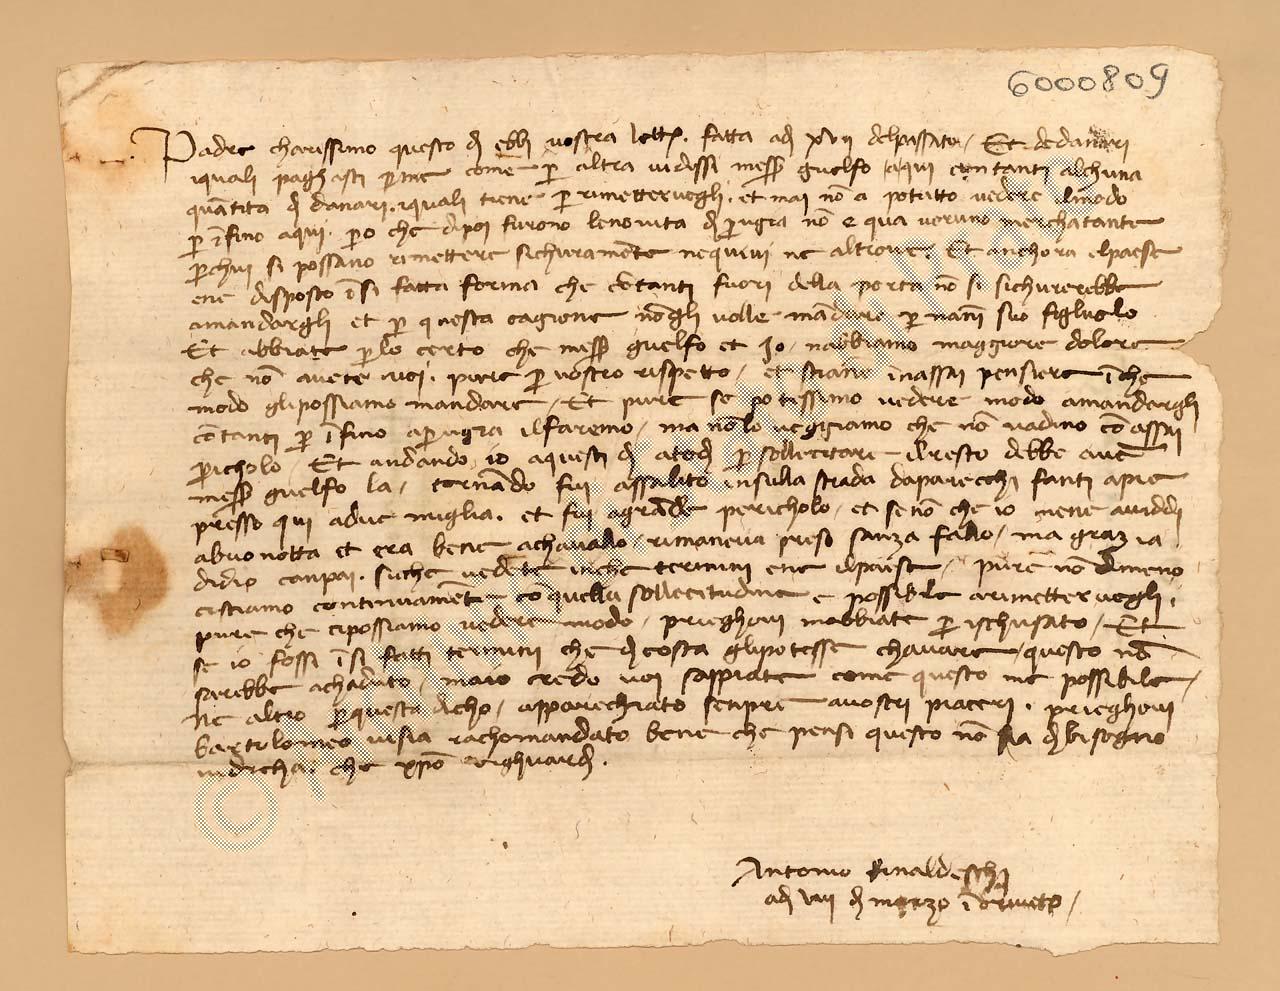 6000809
Padre charissimo questo dì ebbi vostra lett. fatta adì xvii delpassato / Et dedanari
iquali paghasti p me come p altra vidissi mess guelfo aqui contanti alchuna
quātita dì danari . iquali tiene p rimettervegli . et mai nō a potutto vedere il modo
p īfino aqui . po che dipoi furono lenovita dì pugia nō e qua veruno merchatante
p chui si possano rimettere sichuramēte nequivi ne altrove . Et anchora elpaese
ene disposto īsi fatta forma che cōtanti fuori della porta nō si sichurerebbe
amandargli et p questa cagione nōgli volle mādare p nāni suo figluolo
Et abbiate plo certo che mess guelfo et Io / nabbiamo maggiore dolore
che nō avete voi . pure p vostro rispetto / et stiamo inassai pensiere īche
modo glipossiamo mandare / Et pure se potessimo vedere modo amandargli
cōtanti p īfino apugia ilfaremo / ma nōlo veggiamo che nō vadino cō assai
picholo / Et andando io aquesti dì atodi p sollecitare ilresto debbe avē
mess guelfo la / tornādo fui assalito insulla strada daparecchi fanti apie
presso qui adue miglia . et fui agrāde pericholo / et senō che io mene aviddi
abuonotta et era bene achavallo / rimaneva preso sanza fallo / ma grazia
didio canpai . siche vedete inche termini ene ilpaese / purē nō dimeno
cistiamo continuamēte cō quella sollecitudine e possibile arimettervegli .
pure che cipossiamo vedere modo / prieghovi mabbiate p ischusato / Et
se io fossi īsi fatti termini che dì costa glipotesse chavare / questo nō
sarebbe achaduto / maio credo voi sappiate come questo me possibile /
Ne altro p questa dicho / apparechiato senpre avostri piaceri . prieghovi
bartolomeo visia rachomandato bene che pensi questo nō sia dì bisogno
vidicha . che xpō vighuardi .
Antonio Rinaldeschi
adì viii dì marzo ī orvieto /